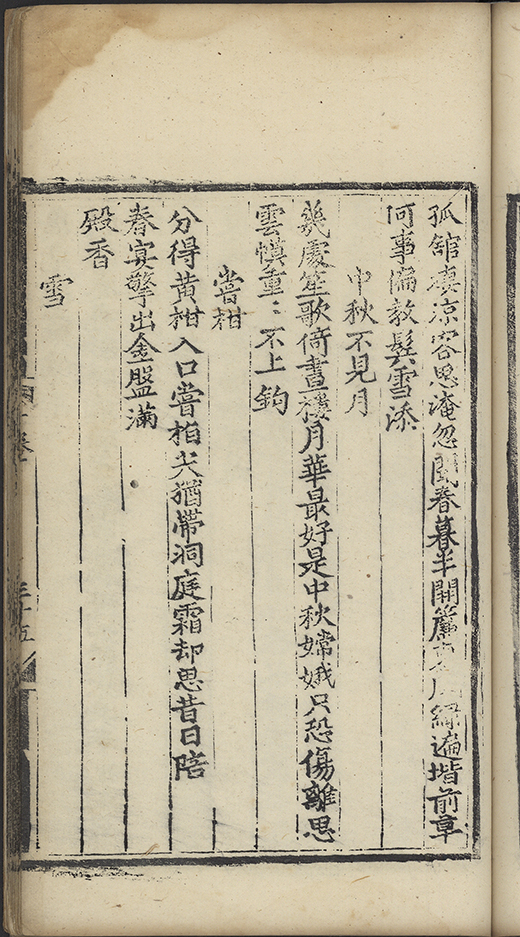 孤舘凄凉客思淹忽聞春暮半開簾東風緑遍堦前草
何事偏教鬂雪添
中秋不見月
幾處笙歌倚畫樓月華最好是中秋嫦娥只恐傷離思
雲幙重〻不上鈎
嘗柑
分得黄柑入口嘗柏犬猶帶洞庭霜却思昔日陪
春宴擎出金盤滿
殿香
雪